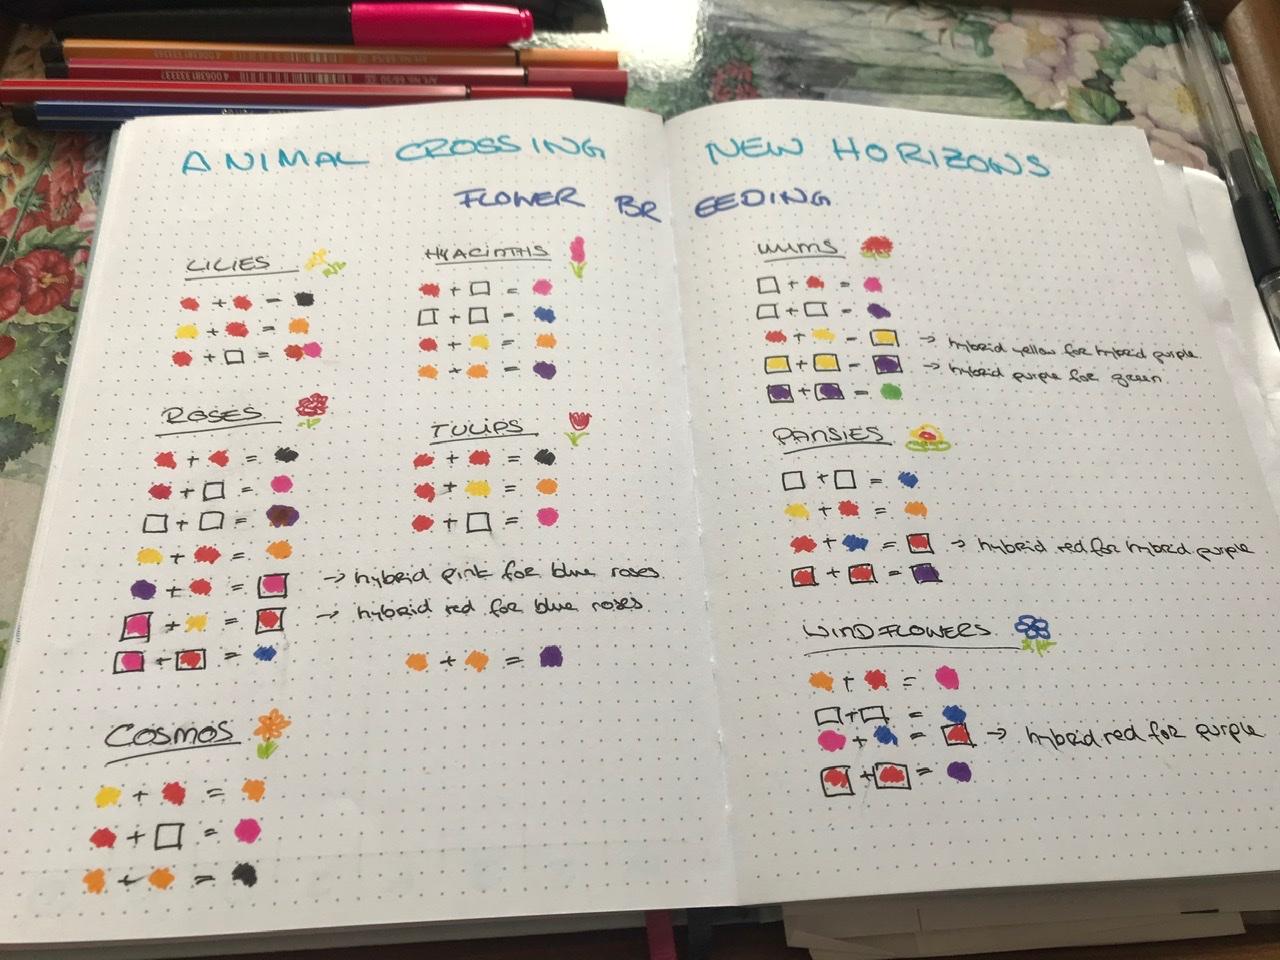 ANIMAL CROSSING NEW HORIZONS
FLOWER BREEDING
LILIES
+ =
+ =
+ =
HYACINTHS
+ =
+ =
+ =
+ =
ROSES
+ =
+ =
+ =
+ =
+ = → hybrid pink for blue roses
+ = → hybrid red for blue roses
+ =
TULIPS
+ =
+ =
+ =
+ =
COSMOS
+ =
+ =
+ =
MUMS
+ =
+ =
+ = → hybrid yellow for hybrid purple
+ = → hybrid purple for green
+ =
PANSIES
+ =
+ =
+ = → hybrid red for hybrid purple
+ =
WINDFLOWERS
+ =
+ =
+ = → hybrid red for purple
+ =